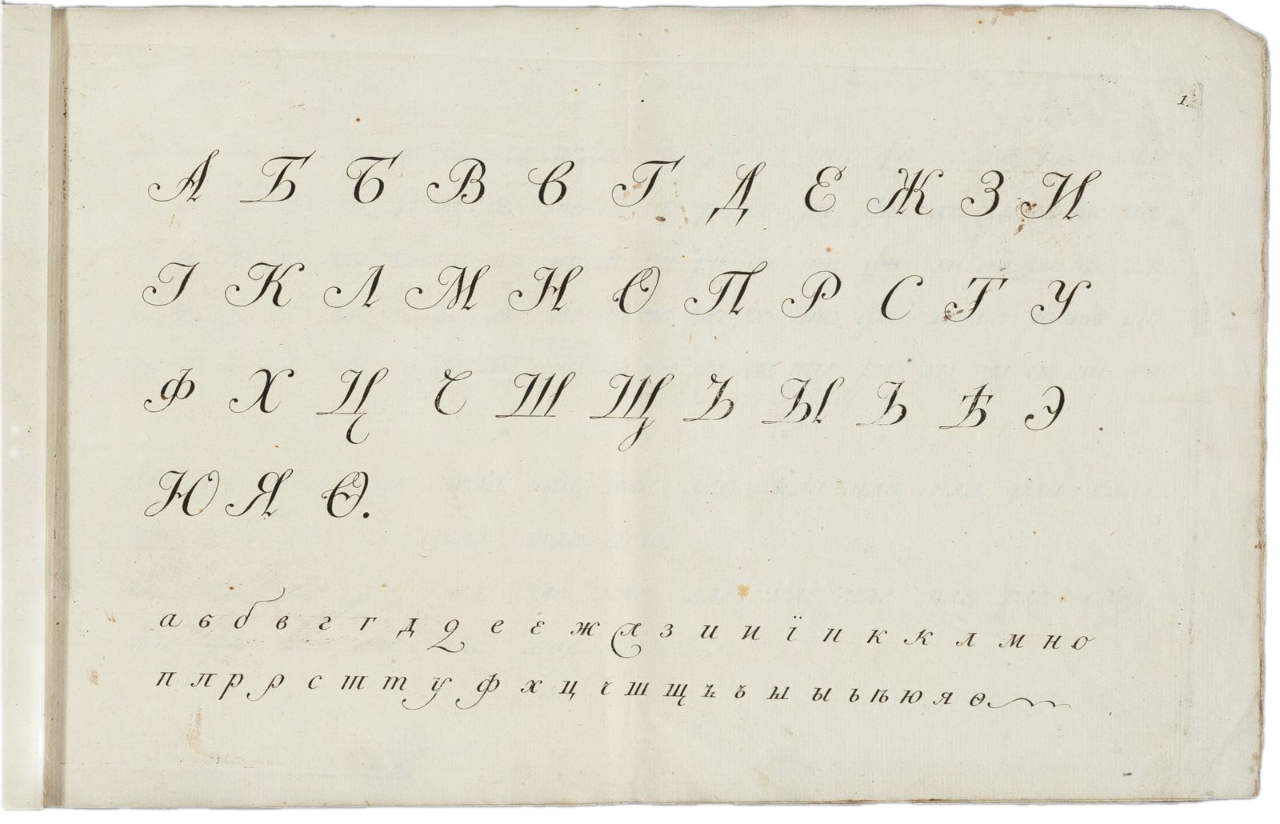 1.
А Б Б В В Г Д Е Ж З И
І К Л М Н О П Р С Т У
Ф Х Ц Ч Ш Щ Ъ Ы Ь Ѣ Э
Ю Я Ѳ.
а б б в г г д д е е ж ж з и и ї п к к л м н о
п п р р с т т у ф х ц ч ш щ ъ ъ ы ы ь ѣ ю я ѳ